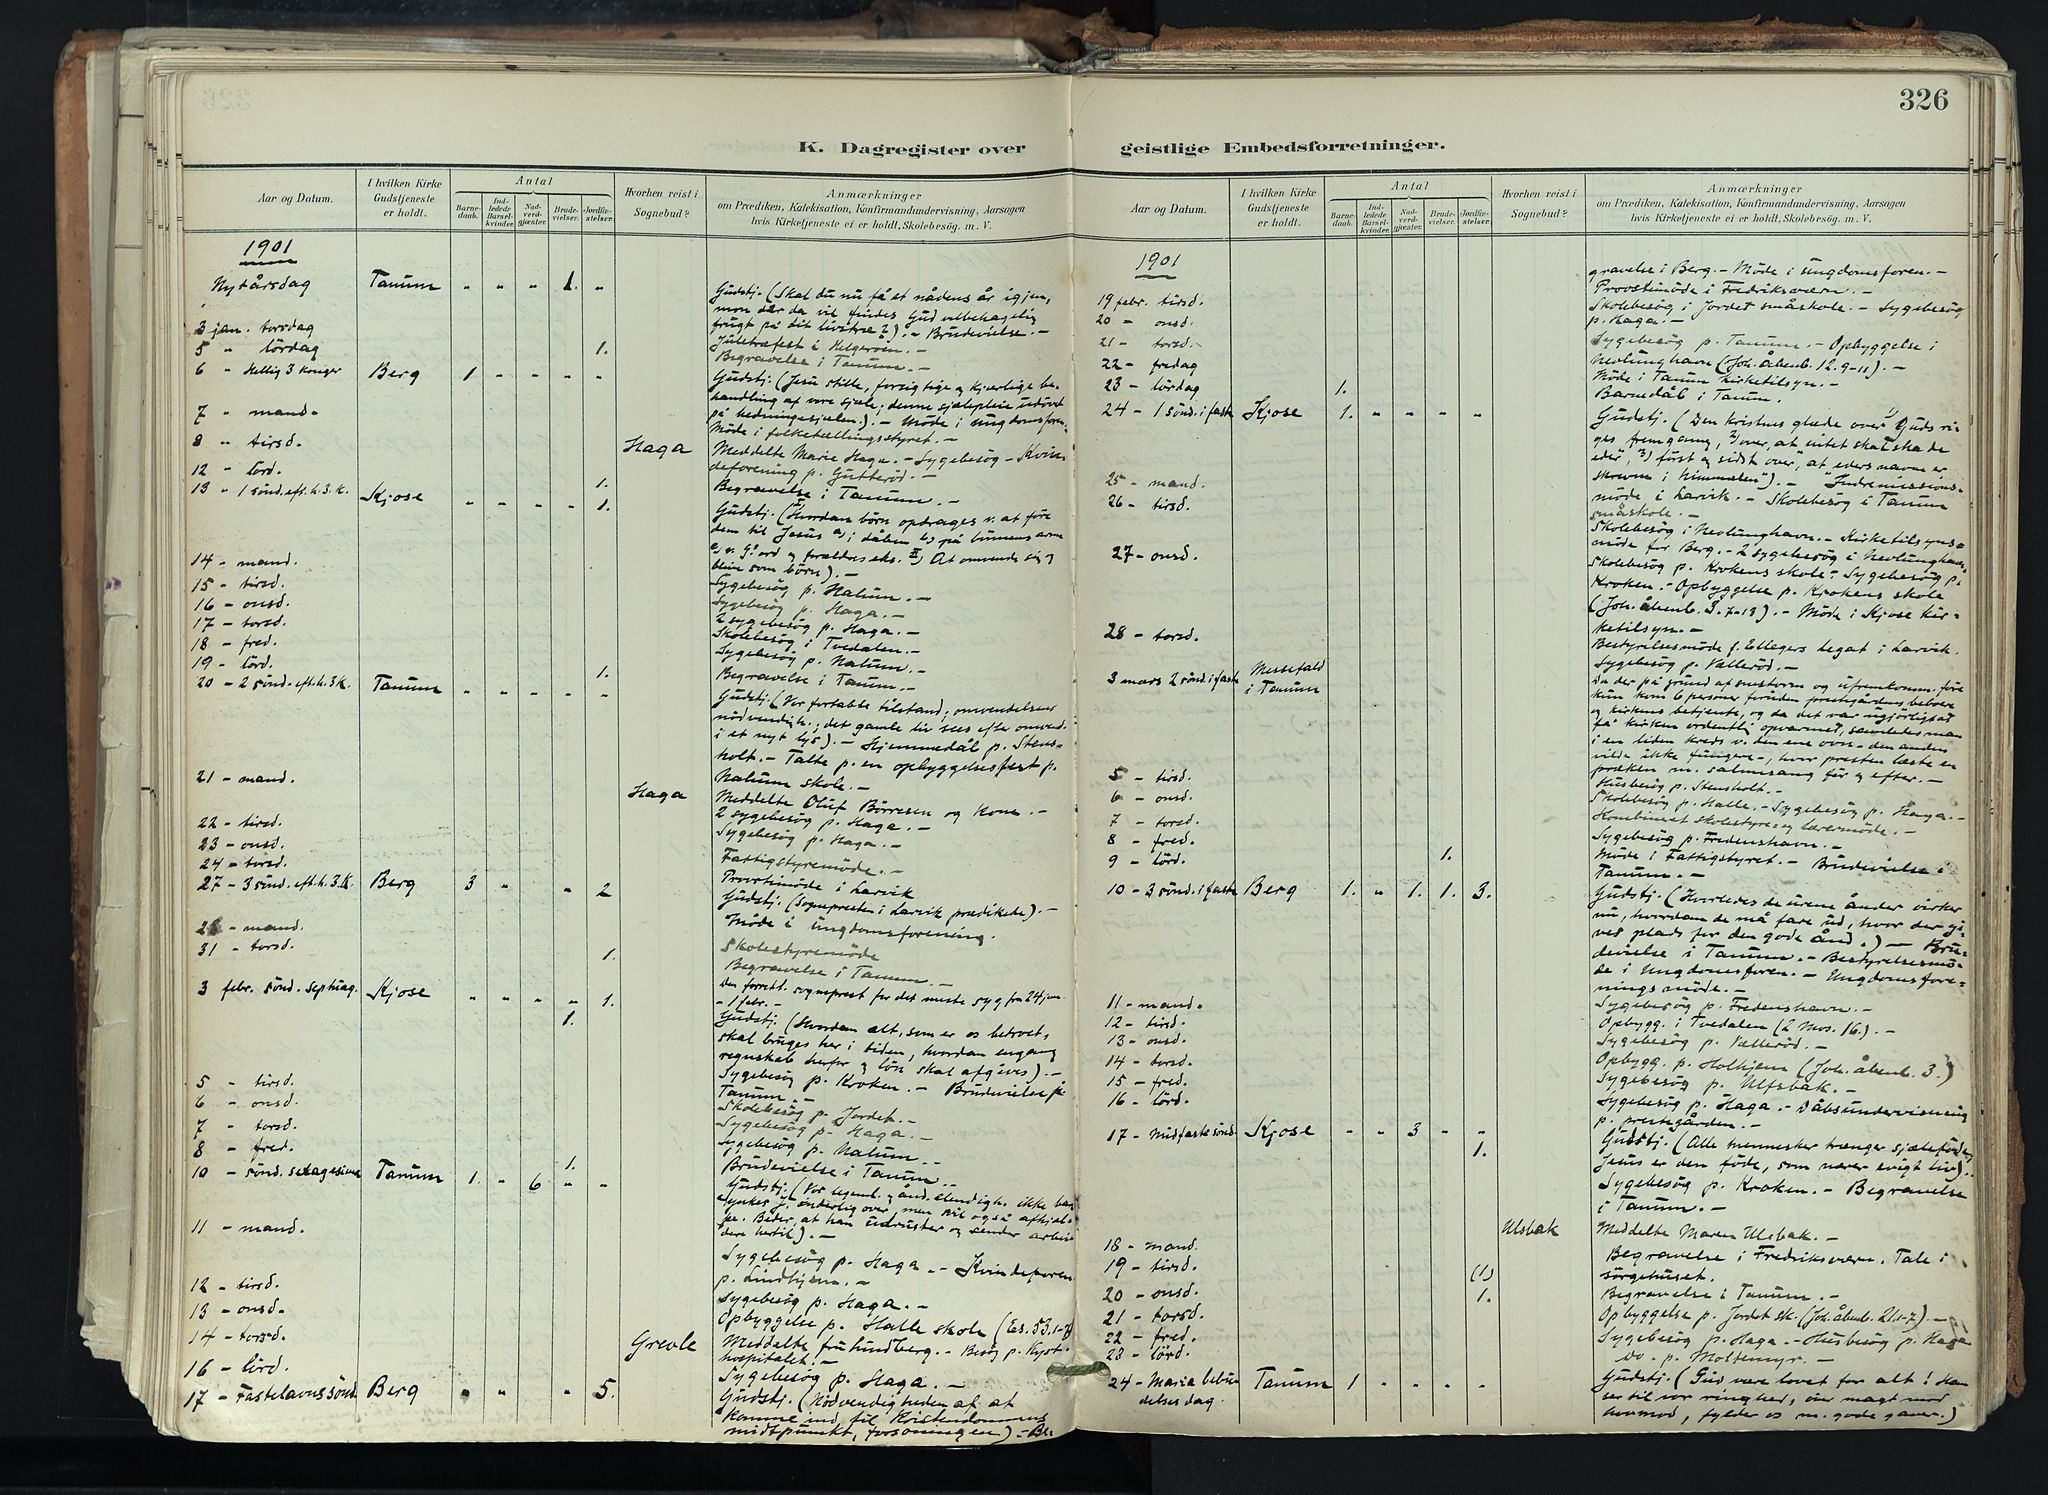 326
K. Dagregister over geistlige Embedsforretninger.
Aar og Datum.
I hvilken Kirke Gudstjeneste er holdt.
Antal
Barnedaab.
Indledede Barselkvinder.
Nadverdgjester.
Brudevielser.
Jordfæstelser.
Hvorhen reist i Sognebud?
Anmærkninger
om Prædiken, Katekisation, Konfirmandundervisning, Aarsagen
hvis Kirketjeneste ei er holdt, Skolebesøg m. V.
1901
Nytårsdag Tanum " " " 1. "
Gudstj. (Skal du nu få et nådens år igjen,
mon der da vil findes Gud velbehagelig
frugt på dit livstræ?). - Brudevielse. -
3 jan. torsdag Juletræfest i Helgeroen. -
5 " lördag 1. Begravelse i Tanum. -
6 " Hellig 3 konger Berg 1 " " " "
Gudstj. (Jesu stille, forsigtige og kjærlige be-
handling af vore sjæle; denne sjælepleie udövet
på hedningesjælen.). - Möde i ungdomsforen.
7 " mand. Möde i folketællingsstyret. -
8 " tirsd. Haga Meddelte Marie Haga. - Sygebesög - Kvin-
deforening p. Gutteröd. -
12 " lörd. 1. Begravelse i Tanum. -
13 " 1 sönd. eft. h. 3. K. Kjose " " " " 1.
Gudstj. (Hvordan börn opdrages v. at före
dem til Jesus a) i dåben b) på bönnens arme
c) v. G.s ord og forældres eks. II) At omvende sig og
blive som börn). -
14 - mand. Sygebesög p. Nalum. -
15 - tirsd. Sygebesög p. Haga. -
16 - onsd. 2 sygebesög p. Haga. -
17 - torsd. Skolebesög i Tvedalen. -
18 - fred. Sygebesög p. Nalum. -
19 - lörd. 1. Begravelse i Tanum. -
20 - 2 sönd. eft. h. 3 K. Tanum " " " " "
Gudstj. (Vor fortabte tilstand; omvendelsens
nödvendigh.; det gamle liv sees efter omvend.
i et nyt lys). - Hjemmedåb p. Stens-
holt. - Talte p. en opbyggelsesfest p.
Nalum skole. -
21 - mand. Haga Meddelte Oluf Börresen og Kone. -
2 sygebesög p. Haga. -
22 - tirsd. Sygebesög p. Haga. -
23 - onsd. Fattigstyremöde. -
24 - torsd. Provstimöde i Larvik
27 - 3 sönd. eft. h. 3. K. Berg 3 " " 2
Gudstj. (Sognepresten i Larvik prædikede). -
Möde i ungdomsforening.
28 - mand. Skolestyremöde
31 - torsd. 1. Begravelse i Tanum. -
Den forrett. sogneprest for det meste syg fra 24 jan.
- 1 febr. -
3 febr. sönd. septuag. Kjose " " " " 1.
1.
Gudstj. (Hvordan alt, som er os betroet,
skal bruges her i tiden, hvordan engang
regnskab herfor og lön skal afgives). -
Sygebesög p. Kroken. - Brudevielse i
Tanum. -
5 - tirsd. Skolebesög p. Jordet. -
6 - onsd. Sygebesög p. Haga. -
7 - torsd. Sygebesög p. Nalum. -
8 - fred. 1. Brudevielse i Tanum. -
10 - sönd. sexagesima Tanum 1. " 6 " "
Gudstj. (Vor legeml. og ånd. elendigh. ikke bare
ynkes J. inderlig over, men vil også afhjæl-
pe. Beder, at han udruster og sender arbei-
dere hertil). -
11 - mand. Sygebesög p. Haga. - Kvindeforen.
p. Lindhjem. -
12 - tirsd. Sygebesög p. Haga. -
13 - onsd. Opbyggelse p. Halle skole (Es. 53.1-7)
14 - torsd. Grevle Meddelte fru Lundberg. - Besög p. Kyst-
hospitalet. -
16 - lörd. Sygebesög p. Haga. -
17 - Fastelavnssönd. Berg " " " 5.
Gudstj. (Nödvendigheden af at
komme ind til Kristendommens
midtpunkt, forsoningen) - Be-
Aar og Datum.
I hvilken Kirke Gudstjeneste er holdt.
Antal
Barnedaab.
Indledede Barselkvinder.
Nadverdgjester.
Brudevielser.
Jordfæstelser.
Hvorhen reist i Sognebud?
Anmærkninger
om Prædiken, Katekisation, Konfirmandundervisning, Aarsagen
hvis Kirketjeneste ei er holdt, Skolebesøg m. V.
1901
gravelse i Berg. - Möde i ungdomsforen. -
19 febr. tirsd. Provstimöde i Fredriksværn. -
20 - onsd. Skolebesög i Jordet småskole. - Sygebesög
p. Haga. -
21 - torsd. Sygebesög p. Tanum. - Opbyggelse i
Nevlunghavn (Joh. åbenb. 12. 9-11). -
22 - fredag Möde i Tanum kirketilsyn. -
23 - lördag 1. Barnedåb i Tanum.
24 - 1 sönd. i faste Kjose 1. " " " "
Gudstj. (Den kristnes glæde over 1) Guds ri-
ges fremgang, 2) over, at intet skal skade
eder", 3) först og sidst over, "at eders navne er
skrevne i himmelen"). - Indremissions-
möde i Larvik. - Skolebesög i Tanum
småskole. -
25 - mand.
26 - tirsd. Skolebesög i Nevlunghavn. - Kirketilsyns-
möde for Berg. - 2 sygebesög i Nevlunghavn.
27 - onsd. Skolebesög p. Krokens skole - Sygebesög p.
Kroken. - Opbyggelse p. Krokens skole
(Joh. åbenb. 3. 7-13). - Möde i Kjose kir-
ketilsyn. -
28 - torsd. Bestyrelsesmöde f. Ellegers legat i Larvik.
Sygebesög p. Valleröd. -
3 mars 2 sönd. i faste Messefald i Tanum
Da der på grund af snestorm og ufremkomm. före
kun kom 6 personer foruden prestgårdens beboere
og kirkens betjente, og da det var ugjörligt at
få kirken ordentlig opvarmet, samledes man
i en liden kreds v. den ene ovn - den anden
vilde ikke fungere -, hvor presten læste en
præken m. salmesang för og efter. -
5 - tirsd. Husbesög p. Stensholt. -
6 - onsd. Skolebesög p. Halle. - Sygebesög p. Haga. -
7 - torsd. Kombineret skolestyre- og lærermöde. -
8 - fred. Sygebesög p. Fredenshavn. -
9 - lörd. 1. Möde i Fattigstyret. - Brudevielse i
Tanum. -
10 - 3 sönd. i faste Berg 1. " 1. 1. 3.
Gudstj. (Hvorledes de urene ånder virker
nu, hvordan de må fare ud, hvor der gi-
ves plads for den gode ånd.) - Bru-
devielse i Tanum. - Bestyrelsesmö-
de i Ungdomsforen. - Ungdomsfore-
ningsmöde. -
11 - mand. Sygebesög p. Fredenshavn. -
12 - tirsd. Opbygg. i Tvedalen (2 Mos. 16.). -
13 - onsd. Sygebesög p. Valleröd. -
14 - torsd. Opbygg. p. Holhjem (Joh. åbenb. 3.)
15 - fred. Sygebesög p. Ulfsbak. -
16 - lörd. Sygebesög p. Haga. - Dåbsundervisning
p. prestegården. -
17 - Midfastesönd. Kjose " " 3 " "
1.
Gudstj. (Alle mennesker trænger sjæleföde,
Jesus er den föde, som nærer evigt liv).
Sygebesög p. Kroken. - Begravelse
i Tanum. -
Ulsbak Meddelte Maren Ulsbak. -
18 - mand.
19 - tirsd. (1) Begravelse i Fredriksværn. Tale i
sörgehuset.
20 - onsd. 1. Begravelse i Tanum. -
21 - torsd. Opbyggelse p. Jordet sk. (Joh. åbenb. 21.1-7) -
22 - fred. Sygebesög p. Haga. - Husbesög p. Haga
23 - lörd. Do. p. Moltemyr. -
24 - Maria bebudelsesdag. Tanum 1 " " " "
Gudstj. (Gud være lovet for alt! Han
ser til vor ringhed, över magt mod
hovmod, fylder os m. gode gaver.)